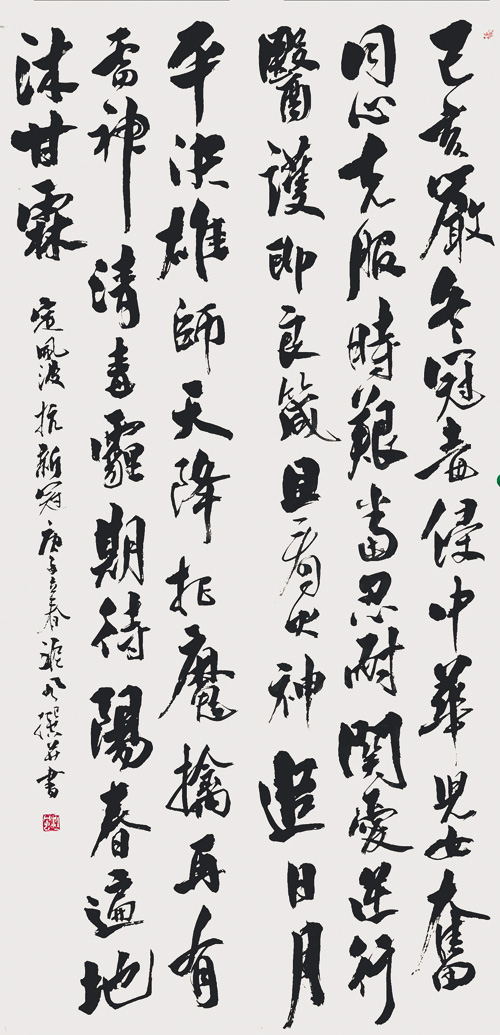 己亥嚴冬冠毒侵中華兒女奮
同心克服時艱當忍耐關愛逆行
醫護即良箴且看火神造日月
平決雄師天降魔擒再有
雷神清毒霾期待陽春遍地
沐甘霖
定風波抗新冠庚子立春撰并書